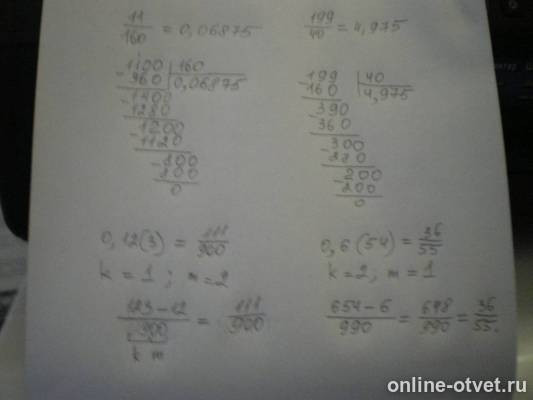 11/160 = 0,06875
1100 | 160
960 | 0,06875
1400
1280
1200
1120
800
800
0
199/40 = 4,975
199 | 40
160 | 4,975
390
360
300
280
200
200
0
0,12(3) = 111/900
k = 1 ; m = 2
123 - 12 / 900 = 111/900
k m
0,6(54) = 36/55
k = 2, m = 1
654 - 6 / 990 = 648/990 = 36/55.
online-otvet.ru